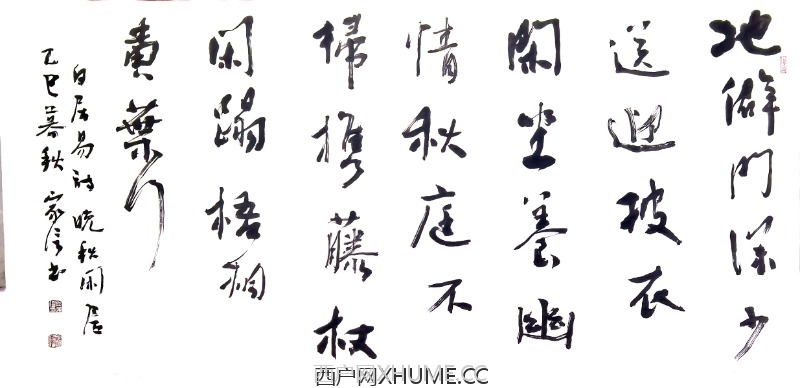 地僻門深少
送迎披衣
閑坐養幽
情秋庭不
掃携藤杖
闲蹋梧桐
黄葉行
白居易诗晚秋闲居
乙巳暮秋家信书
西户网XHUME.CC